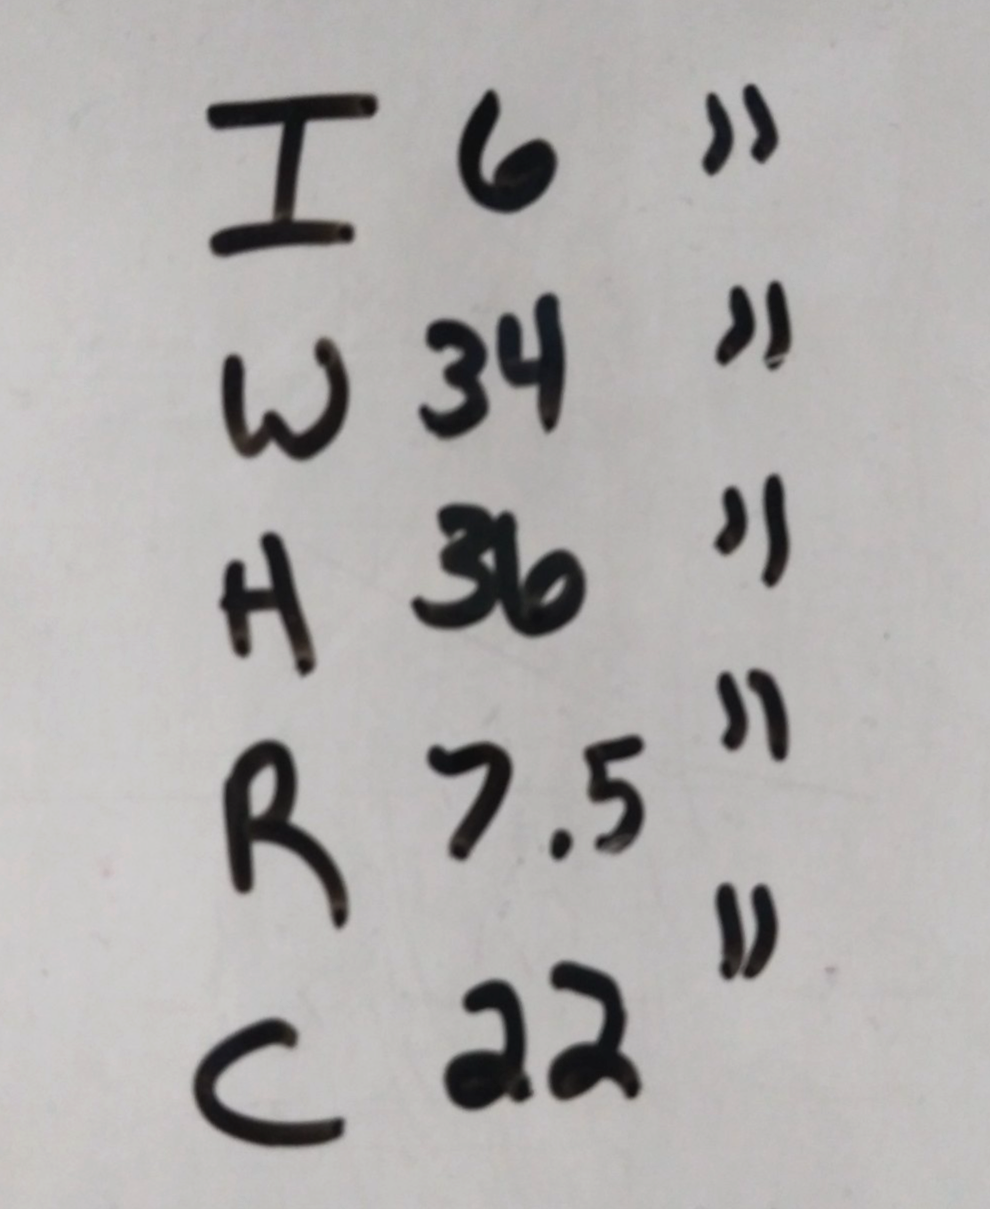 I 6 "
W 34 "
H 36 "
R 7.5 "
C 22 "